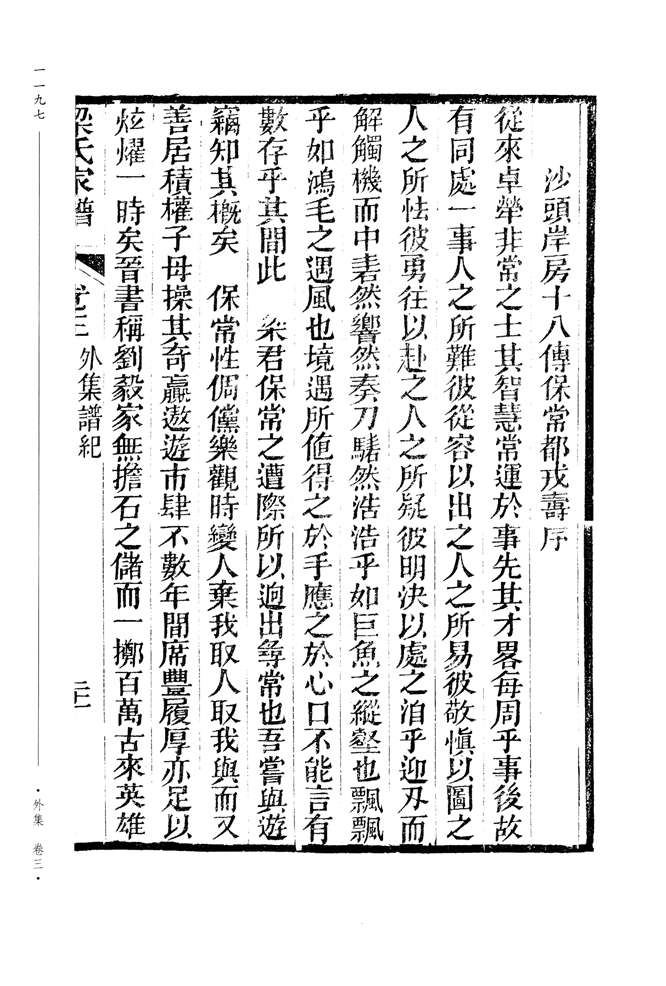 沙頭岸房十八傳保常都戎壽序
從來卓犖非常之士其智慧常運於事先其才畧每周乎事後故
有同處一事人之所難彼從容以出之人之所易彼敬慎以圖之
人之所怯彼勇往以赴之人之所疑彼明決以處之洎乎迎刃而
解觸機而中砉然響然奏刀騞然浩浩乎如巨魚之縱壑也飄飄
乎如鴻毛之遇風也境遇所值得之於手應之於心口不能言有
數存乎其間此 梁君保常之遭際所以逈出尋常也吾嘗與遊
竊知其槪矣 保常性倜儻樂觀時變人棄我取人取我與而又
善居積權子母操其奇贏遨遊市肆不數年間席豐履厚亦足以
炫燿一時矣晉書稱劉毅家無擔石之儲而一擲百萬古來英雄
梁氏家譜 卷三 外集譜紀 二十一
一一九七
·外集 卷三·